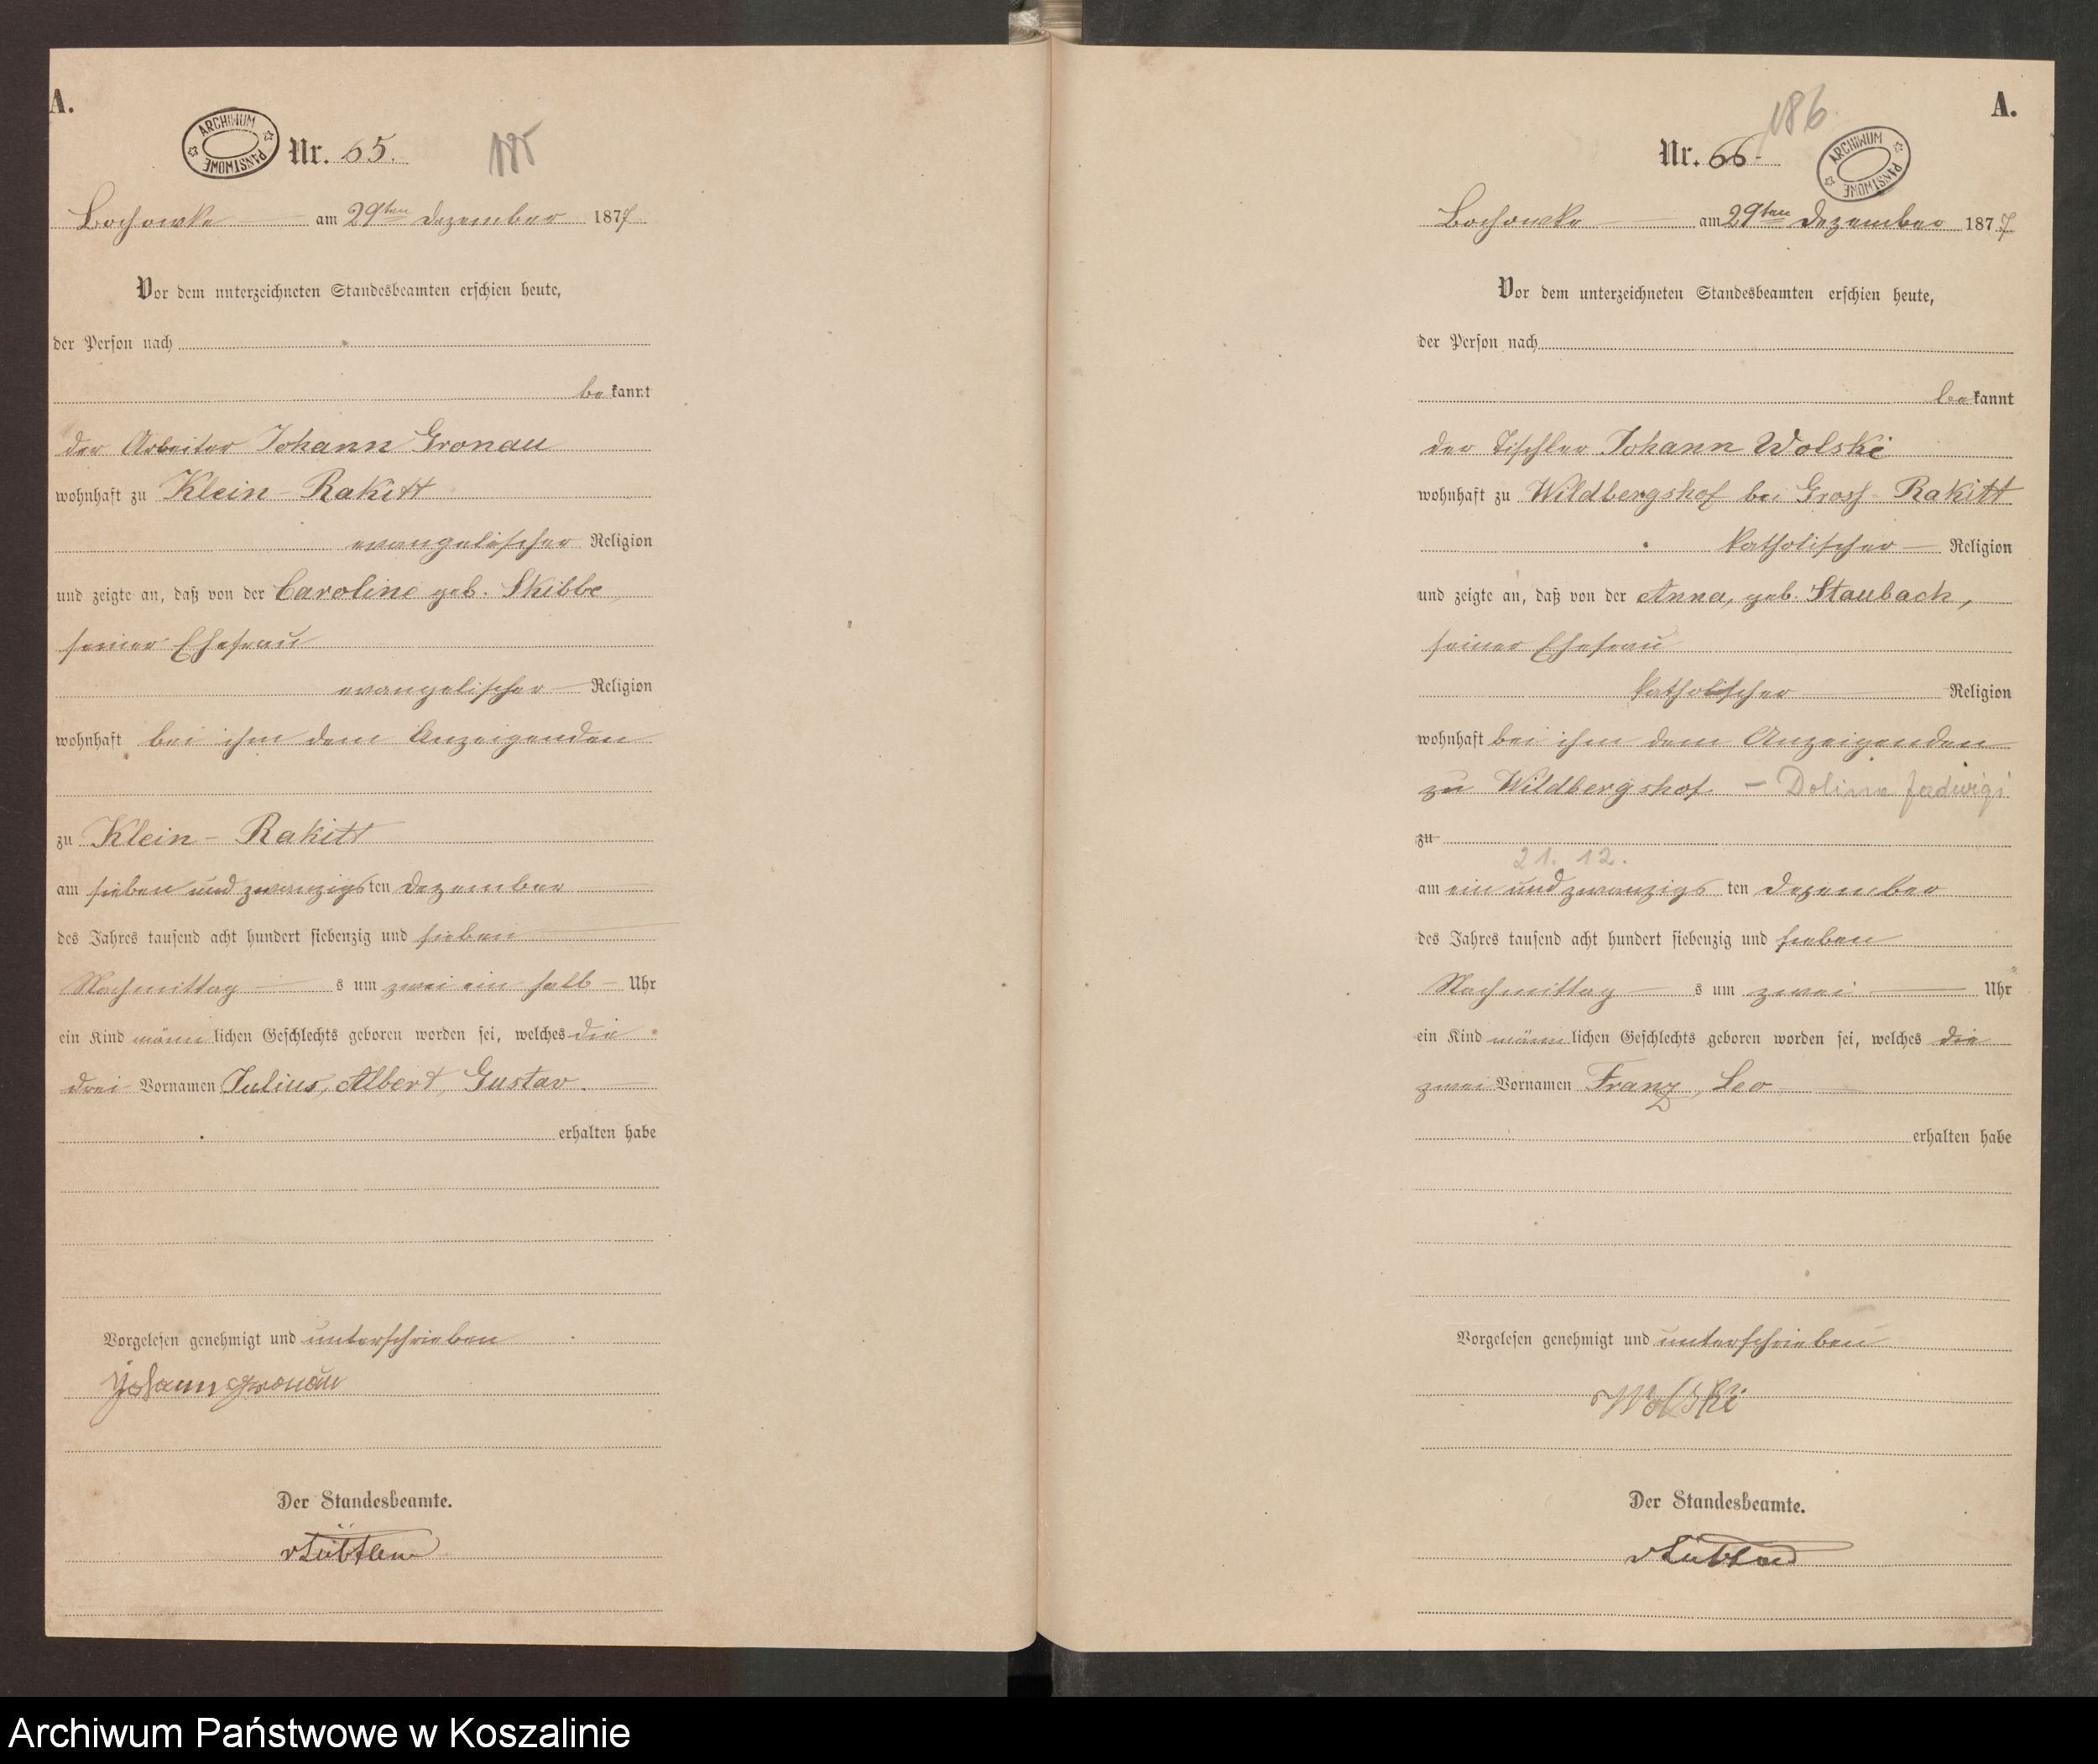 A.
ARCHIWUM PAŃSTWOWE
Nr. 65.
185
Lochowke am 29ten Dezember 1877
Vor dem unterzeichneten Standesbeamten erschien heute,
der Person nach
bekannt
der Arbeiter Johann Gronau
wohnhaft zu Klein-Rakitt
evangelischer Religion
und zeigte an, daß von der Caroline geb. Skibbe,
seiner Ehefrau
evangelischer Religion
wohnhaft bei ihm dem Anzeigenden
zu Klein-Rakitt
am sieben und zwanzigsten Dezember
des Jahres tausend acht hundert siebenzig und sieben
Nachmittags um zwei ein halb Uhr
ein Kind männlichen Geschlechts geboren worden sei, welches die
drei Vornamen Julius, Albert, Gustav.
erhalten habe
Vorgelesen genehmigt und unterschrieben
Johann Gronau
Der Standesbeamte.
A.
186
Nr. 66.
ARCHIWUM PAŃSTWOWE
Lochowke am 29ten Dezember 1877
Vor dem unterzeichneten Standesbeamten erschien heute,
der Person nach
bekannt
der Tischler Johann Wolski
wohnhaft zu Wildbergshof bei Gross-Rakitt
katholischer Religion
und zeigte an, daß von der Anna, geb. Staubach,
seiner Ehefrau
katholischer Religion
wohnhaft bei ihm dem Anzeigenden
zu Wildbergshof. – Dolina Jadwigi
zu
21. 12.
am ein und zwanzigsten Dezember
des Jahres tausend acht hundert siebenzig und sieben
Nachmittags um zwei Uhr
ein Kind männlichen Geschlechts geboren worden sei, welches die
zwei Vornamen Franz, Leo
erhalten habe
Vorgelesen genehmigt und unterschrieben
Wolski
Der Standesbeamte.
Archiwum Państwowe w Koszalinie